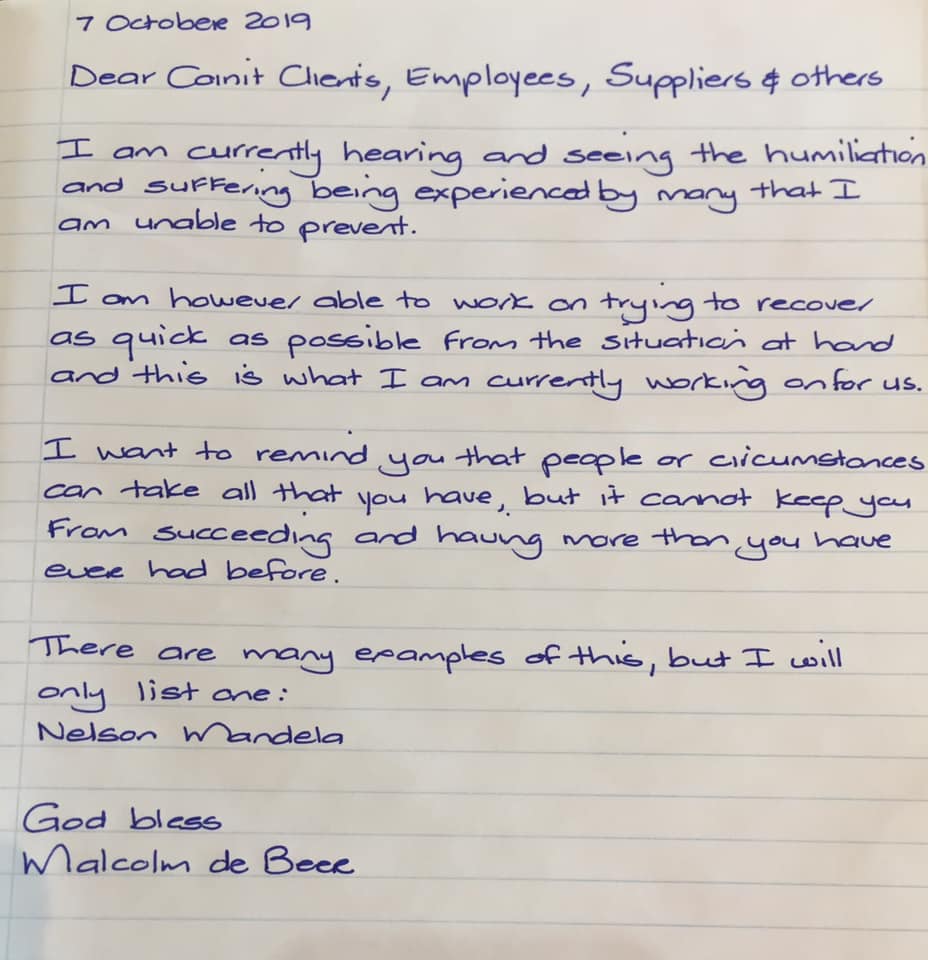 7 October 2019
Dear Coinit Clients, Employees, Suppliers & others
I am currently hearing and seeing the humiliation
and suffering being experienced by many that I
am unable to prevent.
I am however able to work on trying to recover
as quick as possible from the situation at hand
and this is what I am currently working on for us.
I want to remind you that people or circumstances
can take all that you have, but it cannot keep you
from succeeding and having more than you have
ever had before.
There are many examples of this, but I will
only list one:
Nelson Mandela
God bless
Malcolm de Beer